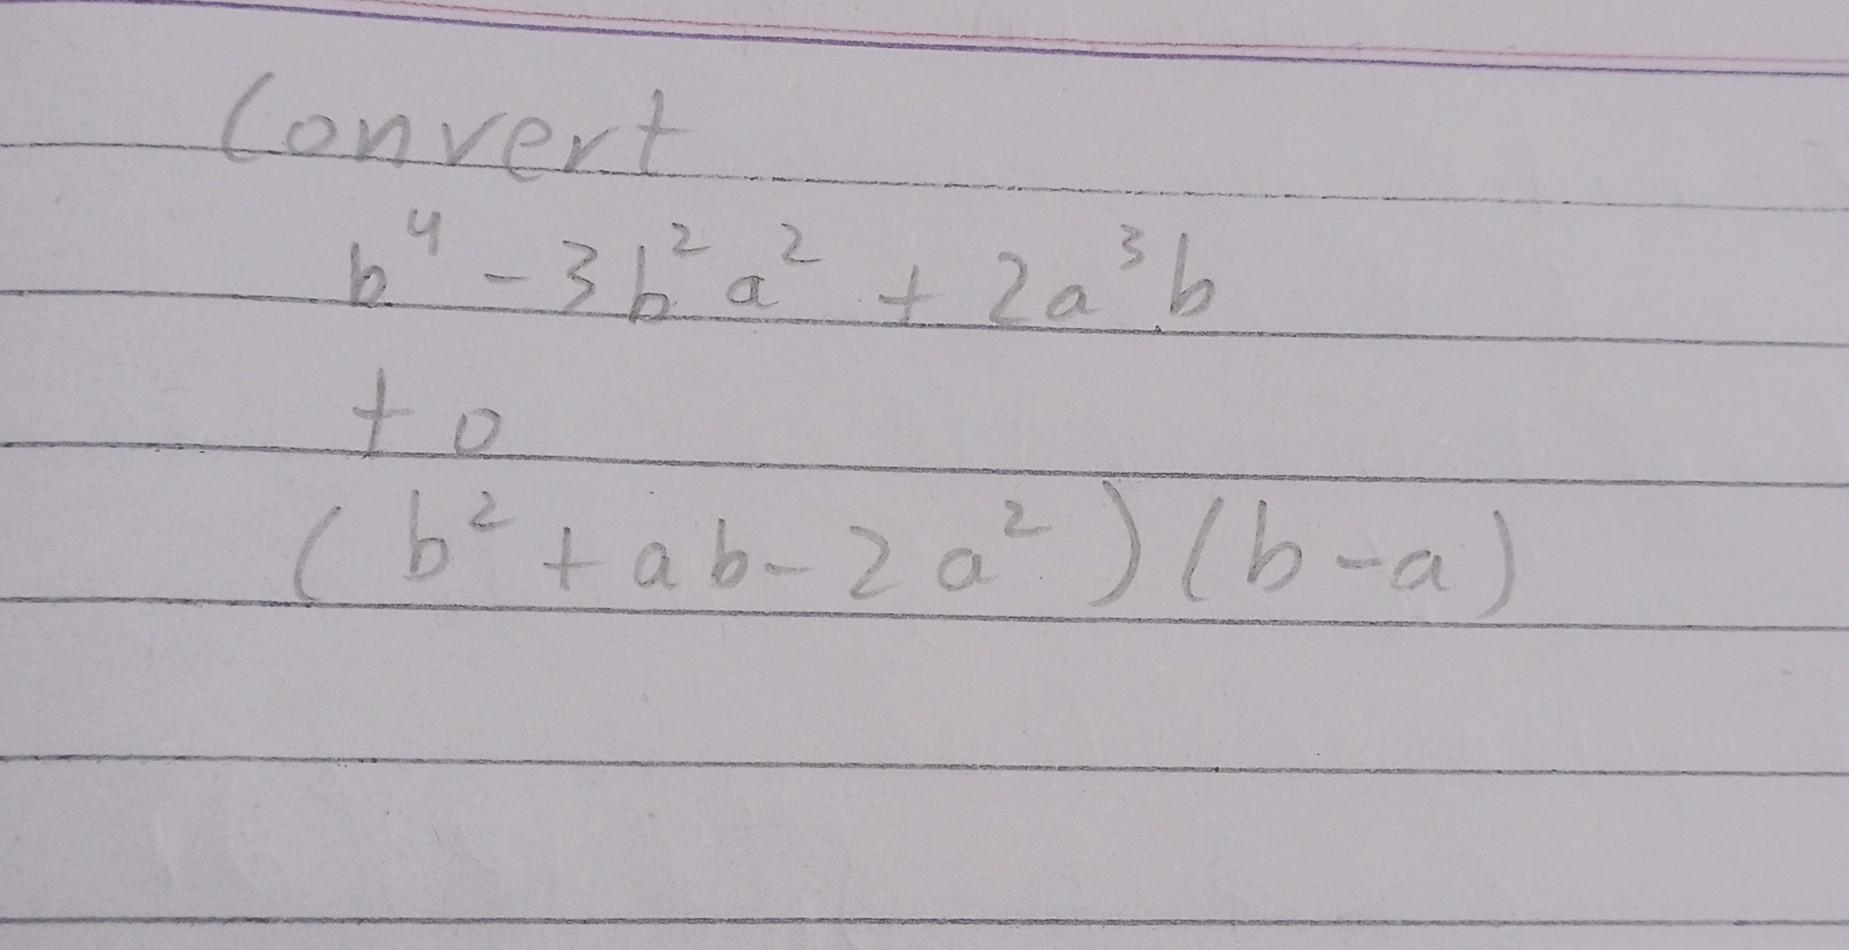 Convert
b⁴ - 3b²a² + 2a³b
to
(b² + ab - 2a²)(b - a)